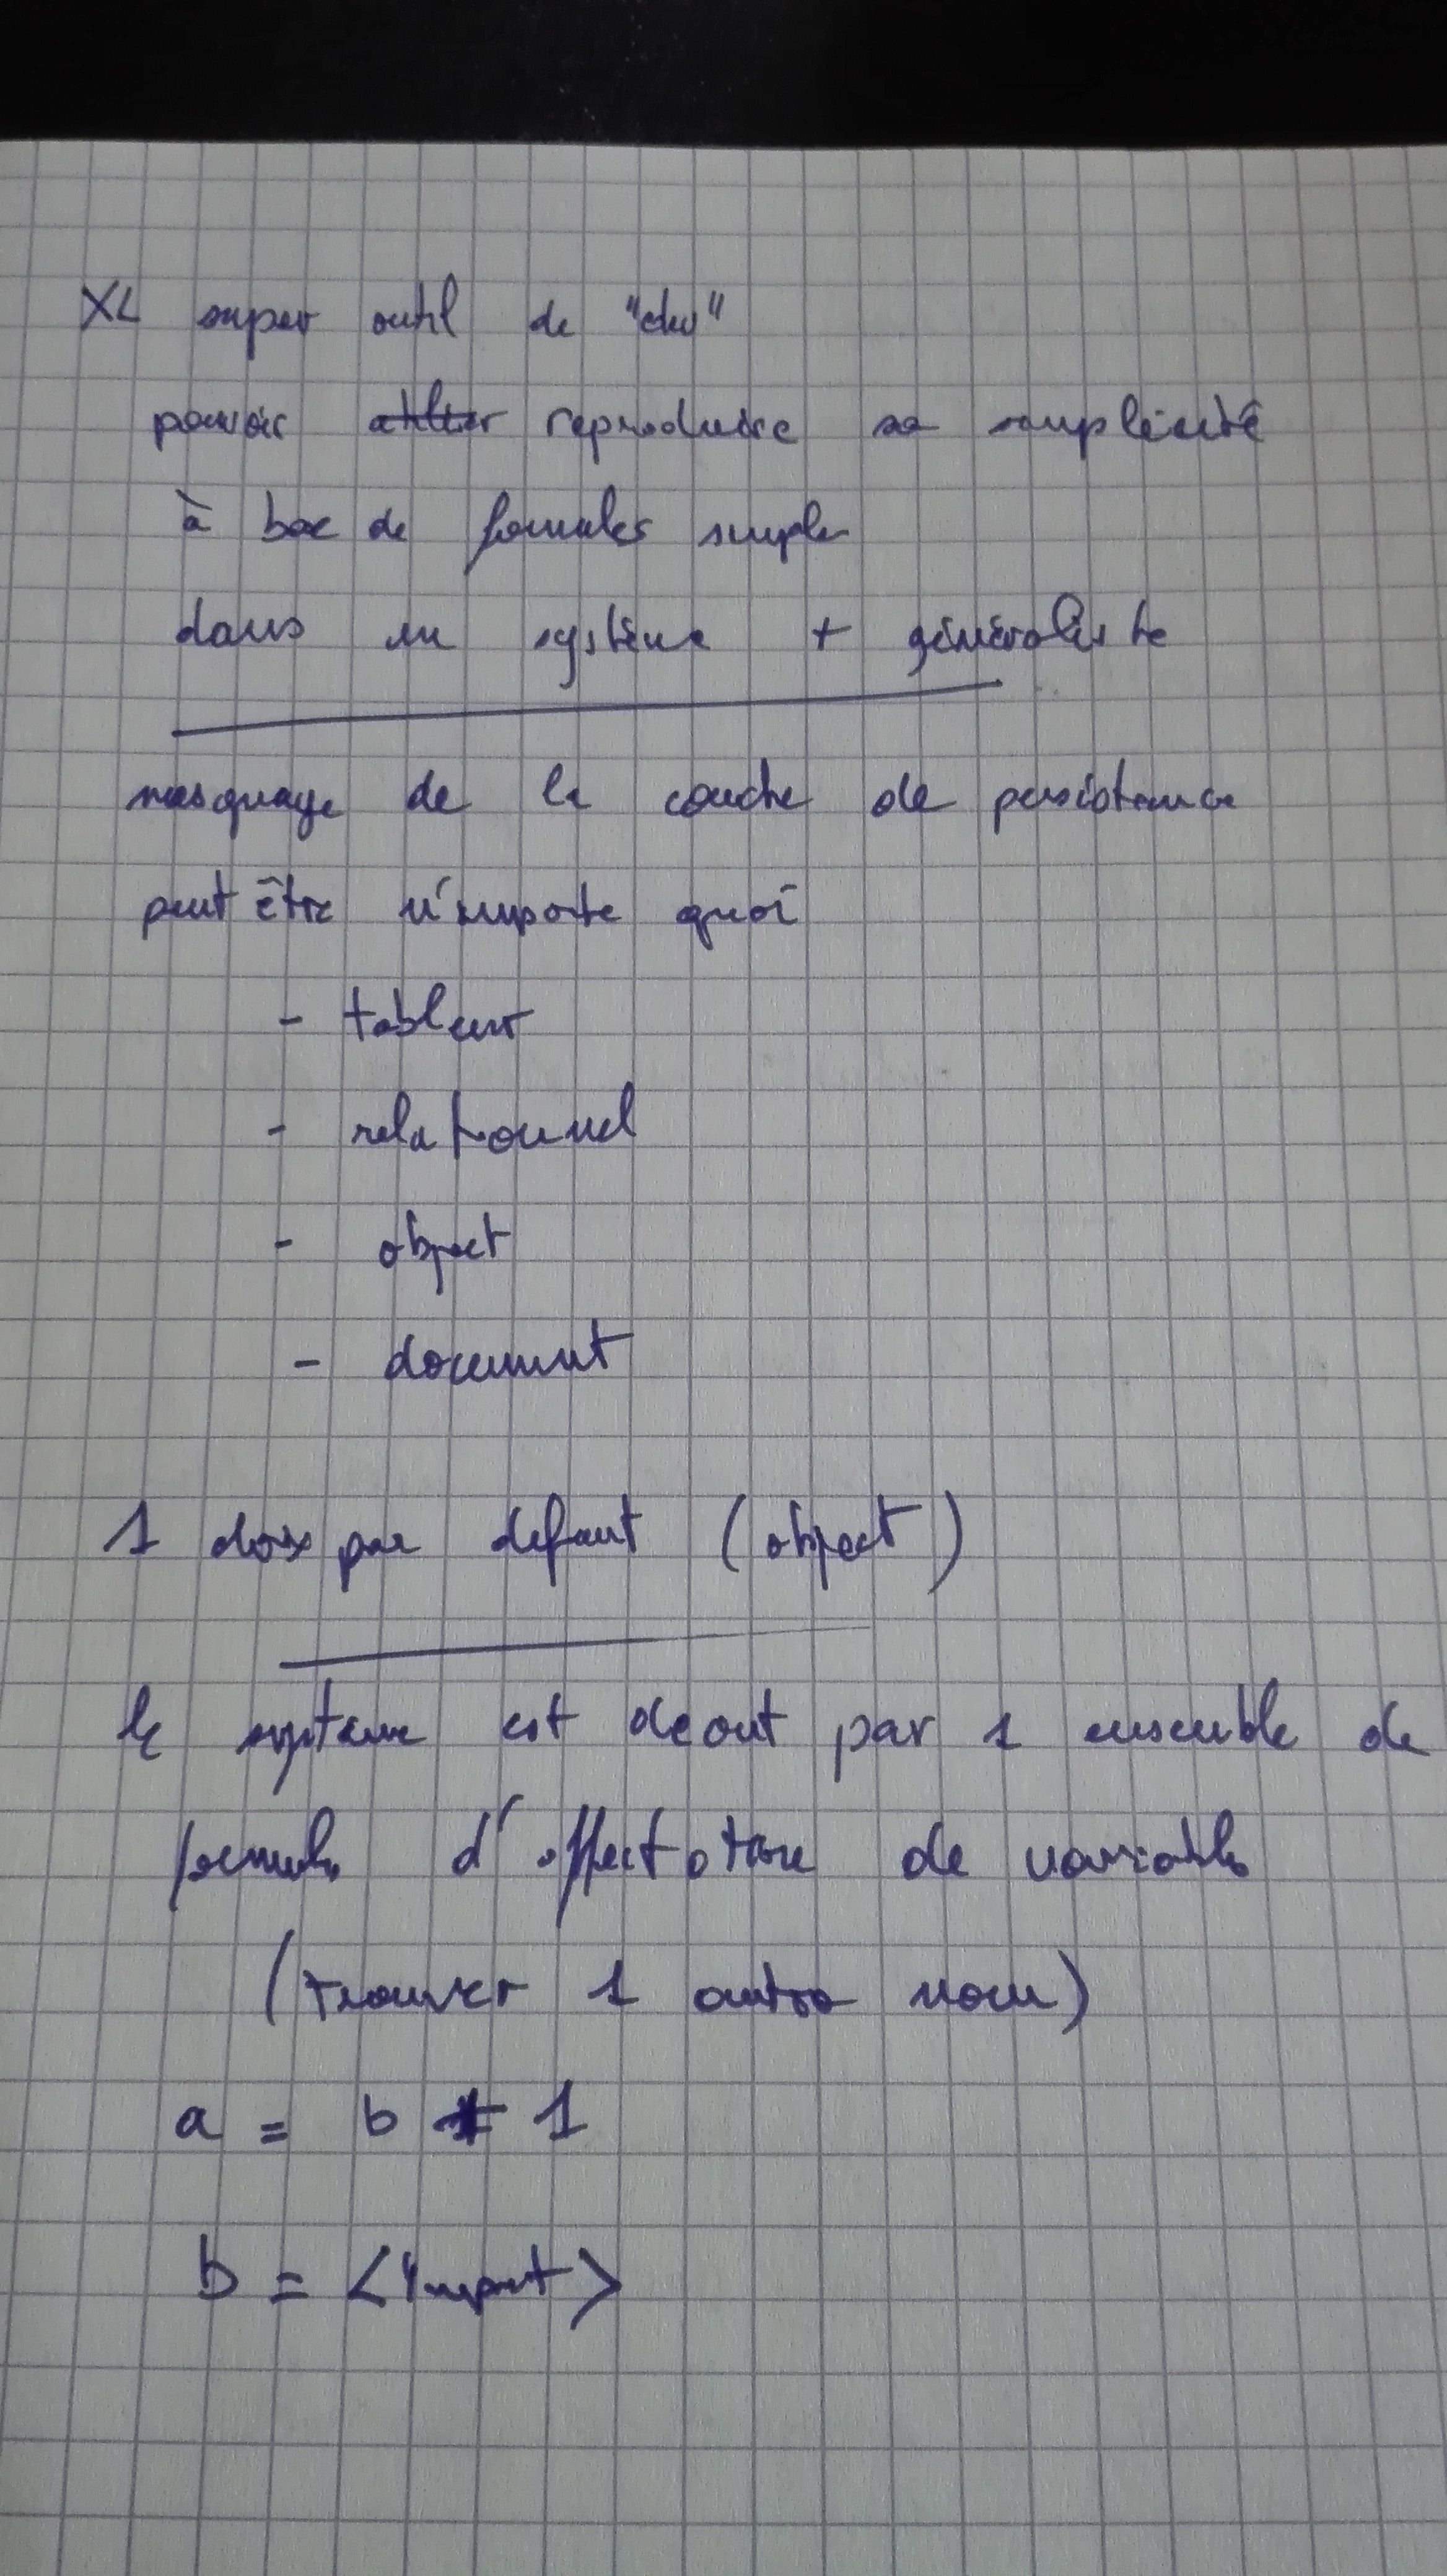 XL super outil de "dev"
pouvoir reproduire sa simplicité
à base de formules simples
dans un système + généraliste
masquage de la couche de persistance
peut être n'importe quoi
- tableur
- relationnel
- object
- document
1 choix par defaut (object)
le système est décrit par 1 ensemble de
formules d'affectation de variables
(trouver 1 autre nom)
a = b 1
b = <input>